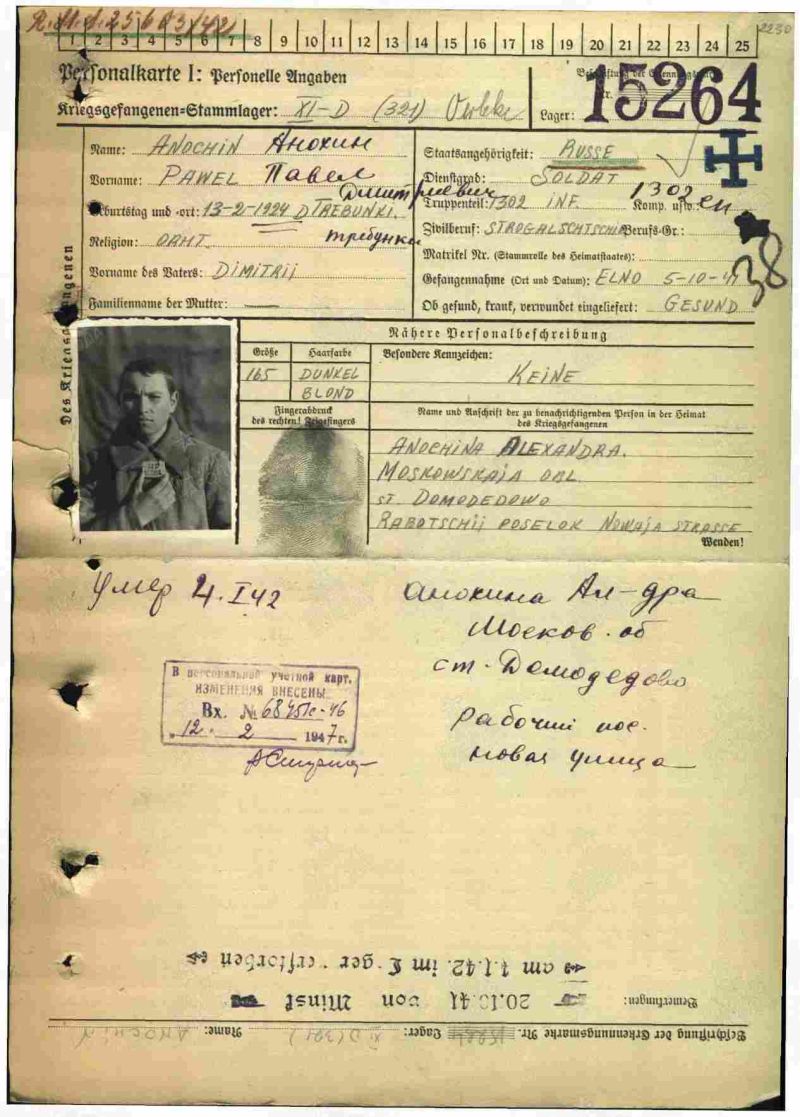 R.11.1.25603/42
2230
1 2 3 4 5 6 7 8 9 10 11 12 13 14 15 16 17 18 19 20 21 22 23 24 25
Personalkarte I: Personelle Angaben
Beschriftung der Erkennungsmarke
Nr. 15264
Kriegsgefangenen=Stammlager: XI-D (321) Oerbke
Lager:
Des Kriegsgefangenen
Name: ANOCHIN Анохин
Vorname: PAWEL Павел
Дмитриевич
Geburtstag und -ort: 13-2-1924 D TREBUNKI.
требунки
Religion: ORHT.
Vorname des Vaters: DIMITRIJ
Familienname der Mutter: —
Staatsangehörigkeit: RUSSE
Dienstgrad: SOLDAT
1302
Truppenteil: 1302 INF. Komp. usw.:
Zivilberuf: Berufs-Gr.:
Matrikel Nr. (Stammrolle des Heimatstaates):
Gefangennahme (Ort und Datum): ELNO 5-10-41
Ob gesund, krank, verwundet eingeliefert: GESUND
38
Nähere Personalbeschreibung
Größe Haarfarbe Besondere Kennzeichen:
165 DUNKEL
BLOND
KEINE
Fingerabdruck
des rechten! Zeigefingers
Name und Anschrift der zu benachrichtigenden Person in der Heimat
des Kriegsgefangenen
ANOCHINA ALEXANDRA.
MOSKOWSKAJA OBL.
ST. DOMODEDOWO
RABOTSCHIJ POSELOK NOWAJA STRASSE
Wenden!
Умер 4.I 42
Анохина Ал-дра
Москов. об
ст. Домодедово
рабочий пос.
новая улица
В персональной учетной карт.
ИЗМЕНЕНИЯ ВНЕСЕНЫ
Вх. №
"12" 2 1947 г.
am 4.1.42 im Lager verstorben
Bemerkungen: 20.10.41 von Minsk
Beschriftung der Erkennungsmarke Nr. Lager: XI D (321) Name: ANOCHIN